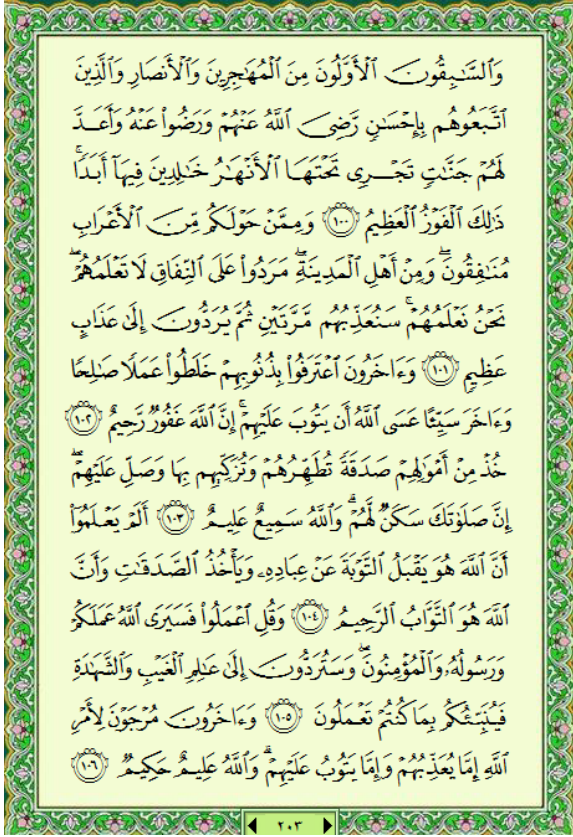 وَٱلسَّـٰبِقُونَ ٱلْأَوَّلُونَ مِنَ ٱلْمُهَـٰجِرِينَ وَٱلْأَنصَارِ وَٱلَّذِينَ
ٱتَّبَعُوهُم بِإِحْسَـٰنٍ رَّضِىَ ٱللَّهُ عَنْهُمْ وَرَضُوا۟ عَنْهُ وَأَعَدَّ
لَهُمْ جَنَّـٰتٍ تَجْرِى تَحْتَهَا ٱلْأَنْهَـٰرُ خَـٰلِدِينَ فِيهَآ أَبَدًا ۚ
ذَٰلِكَ ٱلْفَوْزُ ٱلْعَظِيمُ ﴿١٠٠﴾ وَمِمَّنْ حَوْلَكُم مِّنَ ٱلْأَعْرَابِ
مُنَـٰفِقُونَ ۖ وَمِنْ أَهْلِ ٱلْمَدِينَةِ ۖ مَرَدُوا۟ عَلَى ٱلنِّفَاقِ لَا تَعْلَمُهُمْ ۖ
نَحْنُ نَعْلَمُهُمْ ۚ سَنُعَذِّبُهُم مَّرَّتَيْنِ ثُمَّ يُرَدُّونَ إِلَىٰ عَذَابٍ
عَظِيمٍ ﴿١٠١﴾ وَءَاخَرُونَ ٱعْتَرَفُوا۟ بِذُنُوبِهِمْ خَلَطُوا۟ عَمَلًا صَـٰلِحًا
وَءَاخَرَ سَيِّئًا عَسَى ٱللَّهُ أَن يَتُوبَ عَلَيْهِمْ ۚ إِنَّ ٱللَّهَ غَفُورٌ رَّحِيمٌ ﴿١٠٢﴾
خُذْ مِنْ أَمْوَٰلِهِمْ صَدَقَةً تُطَهِّرُهُمْ وَتُزَكِّيهِم بِهَا وَصَلِّ عَلَيْهِمْ ۖ
إِنَّ صَلَوٰتَكَ سَكَنٌ لَّهُمْ ۗ وَٱللَّهُ سَمِيعٌ عَلِيمٌ ﴿١٠٣﴾ أَلَمْ يَعْلَمُوٓا۟
أَنَّ ٱللَّهَ هُوَ يَقْبَلُ ٱلتَّوْبَةَ عَنْ عِبَادِهِۦ وَيَأْخُذُ ٱلصَّدَقَـٰتِ وَأَنَّ
ٱللَّهَ هُوَ ٱلتَّوَّابُ ٱلرَّحِيمُ ﴿١٠٤﴾ وَقُلِ ٱعْمَلُوا۟ فَسَيَرَى ٱللَّهُ عَمَلَكُمْ
وَرَسُولُهُۥ وَٱلْمُؤْمِنُونَ ۖ وَسَتُرَدُّونَ إِلَىٰ عَـٰلِمِ ٱلْغَيْبِ وَٱلشَّهَـٰدَةِ
فَيُنَبِّئُكُم بِمَا كُنتُمْ تَعْمَلُونَ ﴿١٠٥﴾ وَءَاخَرُونَ مُرْجَوْنَ لِأَمْرِ
ٱللَّهِ إِمَّا يُعَذِّبُهُمْ وَإِمَّا يَتُوبُ عَلَيْهِمْ ۗ وَٱللَّهُ عَلِيمٌ حَكِيمٌ ﴿١٠٦﴾
٢٠٣